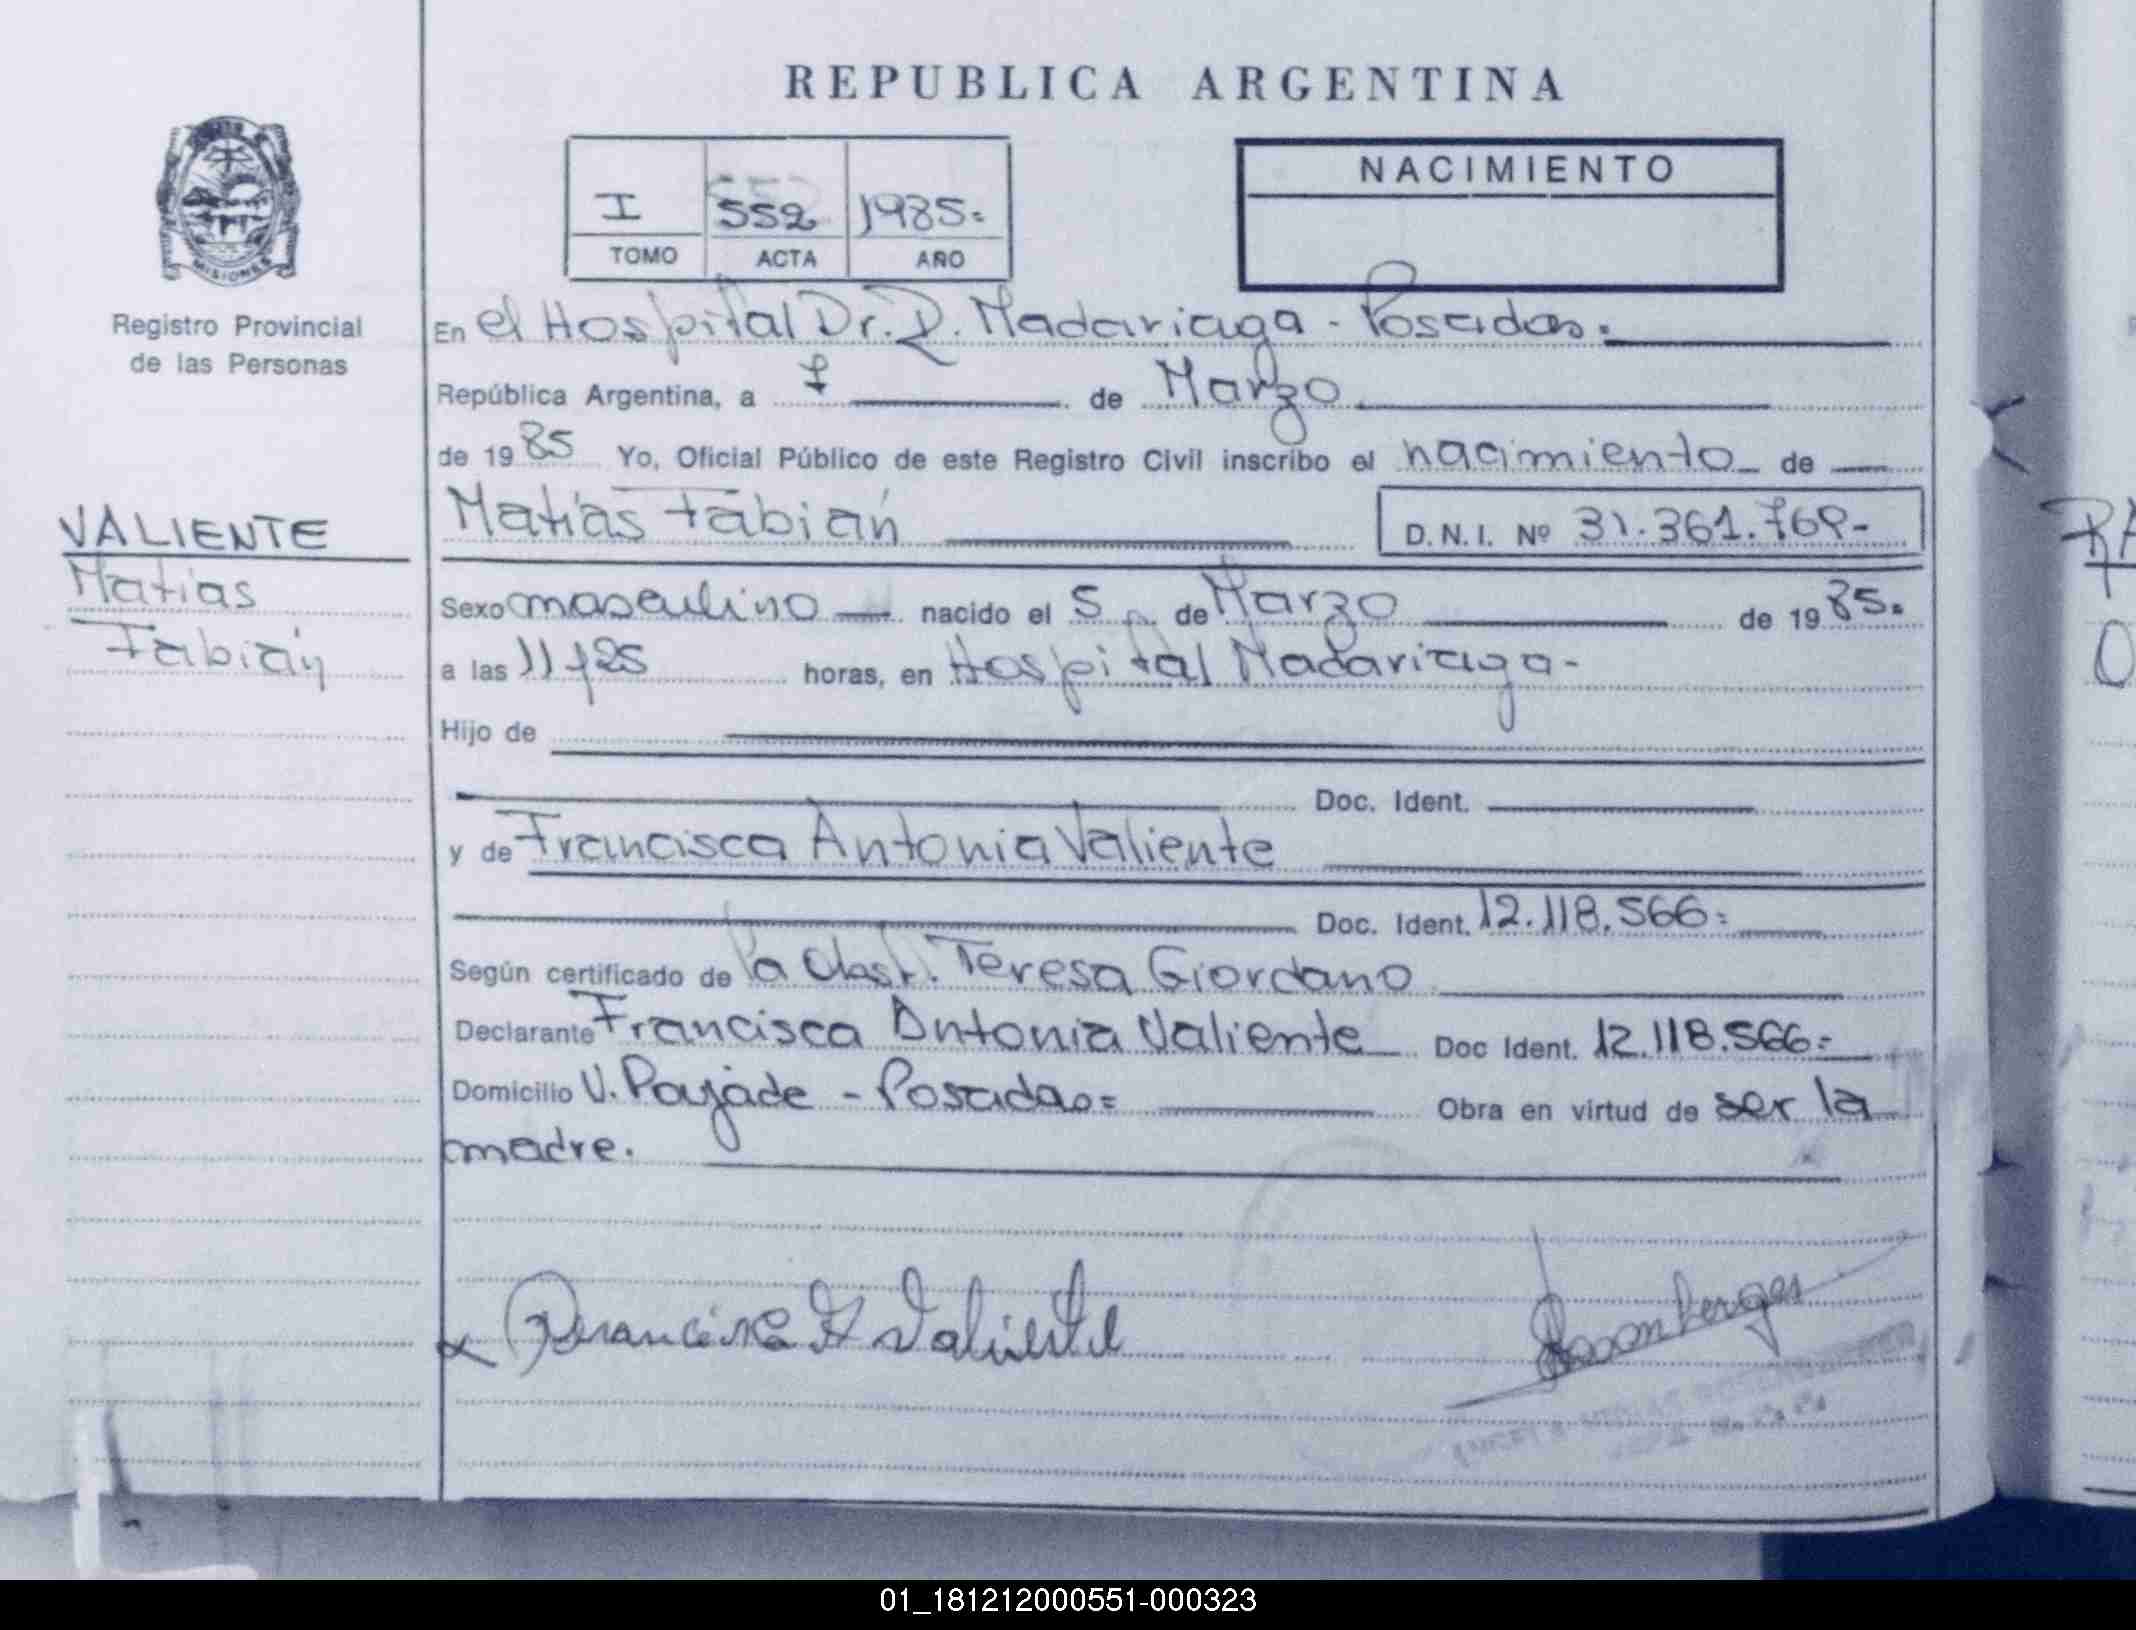 REPUBLICA ARGENTINA
MISIONES
Registro Provincial
de las Personas
I 552 1985.
TOMO ACTA AÑO
NACIMIENTO
En el Hospital Dr. R. Madariaga - Posadas.
República Argentina, a 7 de Marzo
de 1985 Yo, Oficial Público de este Registro Civil inscribo el nacimiento de
VALIENTE
Matías
Fabián
Matías Fabián D.N.I. Nº 31.361.769-
Sexo masculino nacido el 5 de Marzo de 1985.
a las 11 y 25 horas, en Hospital Madariaga-
Hijo de
Doc. Ident.
y de Francisca Antonia Valiente
Doc. Ident. 12.118.566=
Según certificado de la Obst. Teresa Giordano
Declarante Francisca Antonia Valiente Doc Ident. 12.118.566=
Domicilio V. Poujade - Posadas= Obra en virtud de ser la
madre.
Francisca A Valiente
01_181212000551-000323